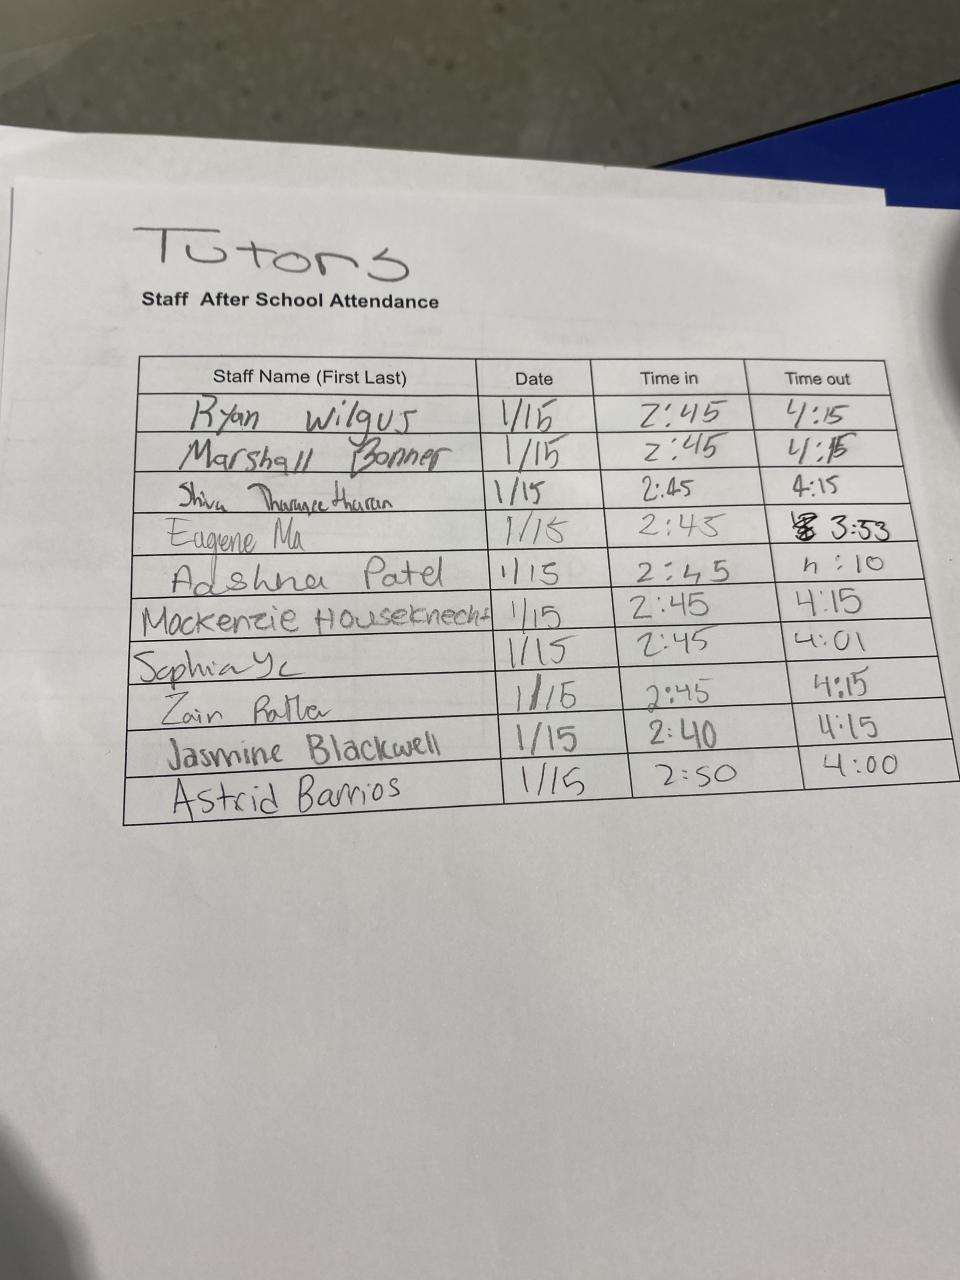 Tutors
Staff After School Attendance
Staff Name (First Last) Date Time in Time out
Ryan Wilgus 1/15 2:45 4:15
Marshall Bonner 1/15 2:45 4:15
Shiva 1/15 2:45 4:15
Eugene Ma 1/15 2:45 3:53
Aashna Patel 1/15 2:45 4:10
Mackenzie Houseknecht 1/15 2:45 4:15
Sophia Ye 1/15 2:45 4:01
Zain 1/15 2:45 4:15
Jasmine Blackwell 1/15 2:40 4:15
Astrid Barrios 1/15 2:50 4:00